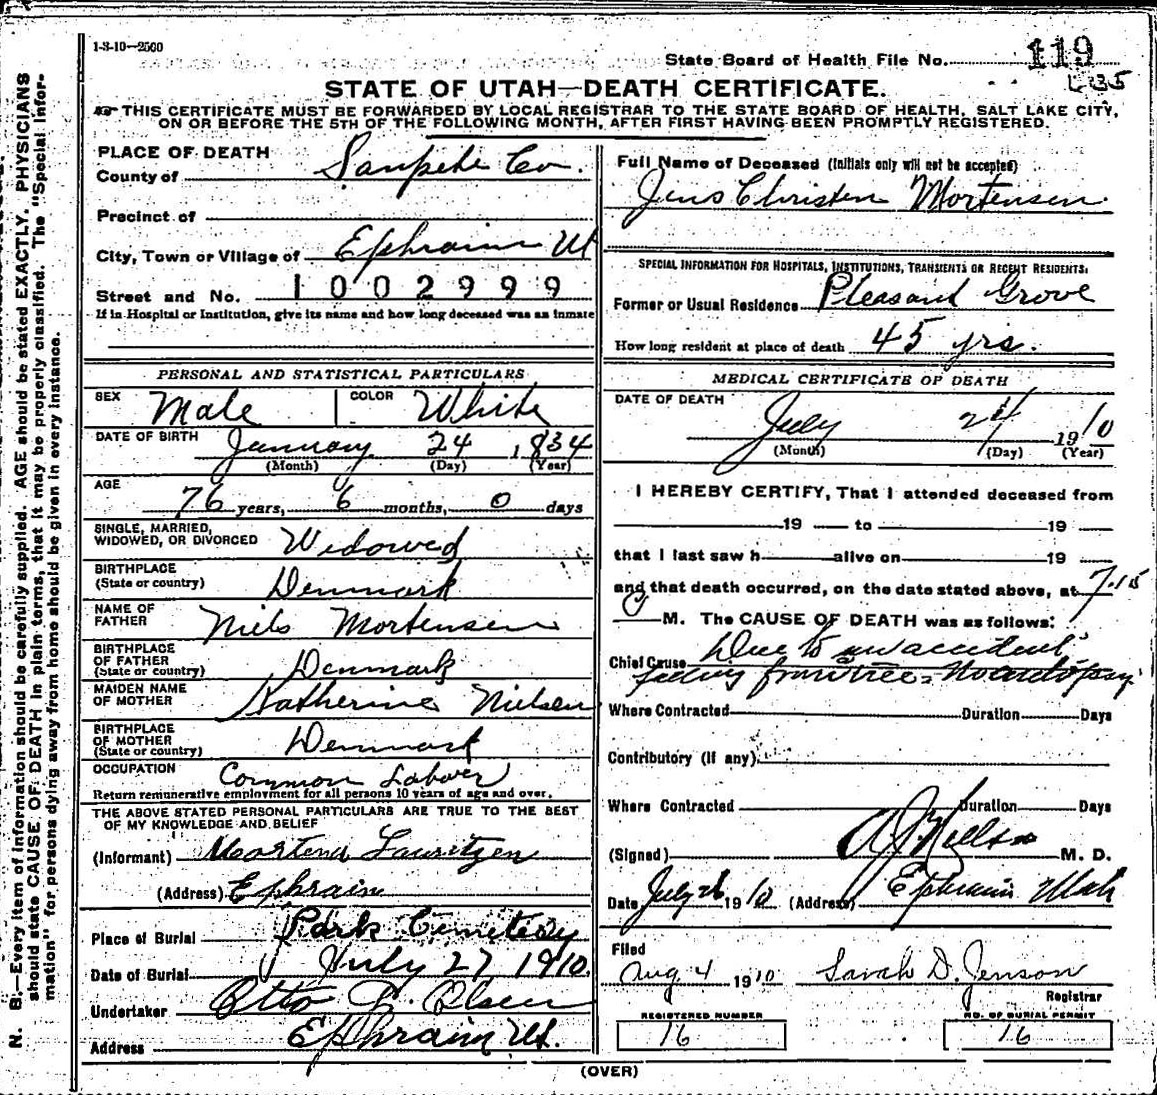 1-3-10—2500
State Board of Health File No. 119
235
STATE OF UTAH—DEATH CERTIFICATE.
THIS CERTIFICATE MUST BE FORWARDED BY LOCAL REGISTRAR TO THE STATE BOARD OF HEALTH, SALT LAKE CITY,
ON OR BEFORE THE 5TH OF THE FOLLOWING MONTH, AFTER FIRST HAVING BEEN PROMPTLY REGISTERED.
N. B.—Every item of information should be carefully supplied. AGE should be stated EXACTLY. PHYSICIANS
should state CAUSE OF DEATH in plain terms, that it may be properly classified. The "Special Infor-
mation" for persons dying away from home should be given in every instance.
PLACE OF DEATH
County of Sanpete Co.
Precinct of
City, Town or Village of Ephraim Ut
Street and No. 1002999
If in Hospital or Institution, give its name and how long deceased was an inmate
PERSONAL AND STATISTICAL PARTICULARS
SEX Male COLOR White
DATE OF BIRTH January 24, 1834
(Month) (Day) (Year)
AGE
76 years, 6 months, 0 days
SINGLE, MARRIED,
WIDOWED, OR DIVORCED Widowed
BIRTHPLACE
(State or country) Denmark
NAME OF
FATHER Niels Mortensen
BIRTHPLACE
OF FATHER
(State or country) Denmark
MAIDEN NAME
OF MOTHER Katherine Nielsen
BIRTHPLACE
OF MOTHER
(State or country) Denmark
OCCUPATION Common Laborer
Return remunerative employment for all persons 10 years of age and over.
THE ABOVE STATED PERSONAL PARTICULARS ARE TRUE TO THE BEST
OF MY KNOWLEDGE AND BELIEF
(Informant) Lauritzen
(Address) Ephraim
Place of Burial Park Cemetery
Date of Burial July 27 1910.
Undertaker Otto Olsen
Address Ephraim Ut.
Full Name of Deceased (Initials only will not be accepted)
Jens Christen Mortensen.
SPECIAL INFORMATION FOR HOSPITALS, INSTITUTIONS, TRANSIENTS OR RECENT RESIDENTS.
Former or Usual Residence Pleasant Grove
How long resident at place of death 45 yrs.
MEDICAL CERTIFICATE OF DEATH
DATE OF DEATH
July 24 1910
(Month) (Day) (Year)
I HEREBY CERTIFY, That I attended deceased from
19 to 19
that I last saw h alive on 19
and that death occurred, on the date stated above, at 7.15
M. The CAUSE OF DEATH was as follows:
Chief Cause Due to an accident
from tree. No autopsy
Where Contracted Duration Days
Contributory (if any)
Where Contracted Duration Days
(Signed) M. D.
Date July 26 1910 (Address) Ephraim Utah
Filed
Aug 4 1910 Sarah D. Jenson
Registrar
REGISTERED NUMBER
16
NO. OF BURIAL PERMIT
16
(OVER)